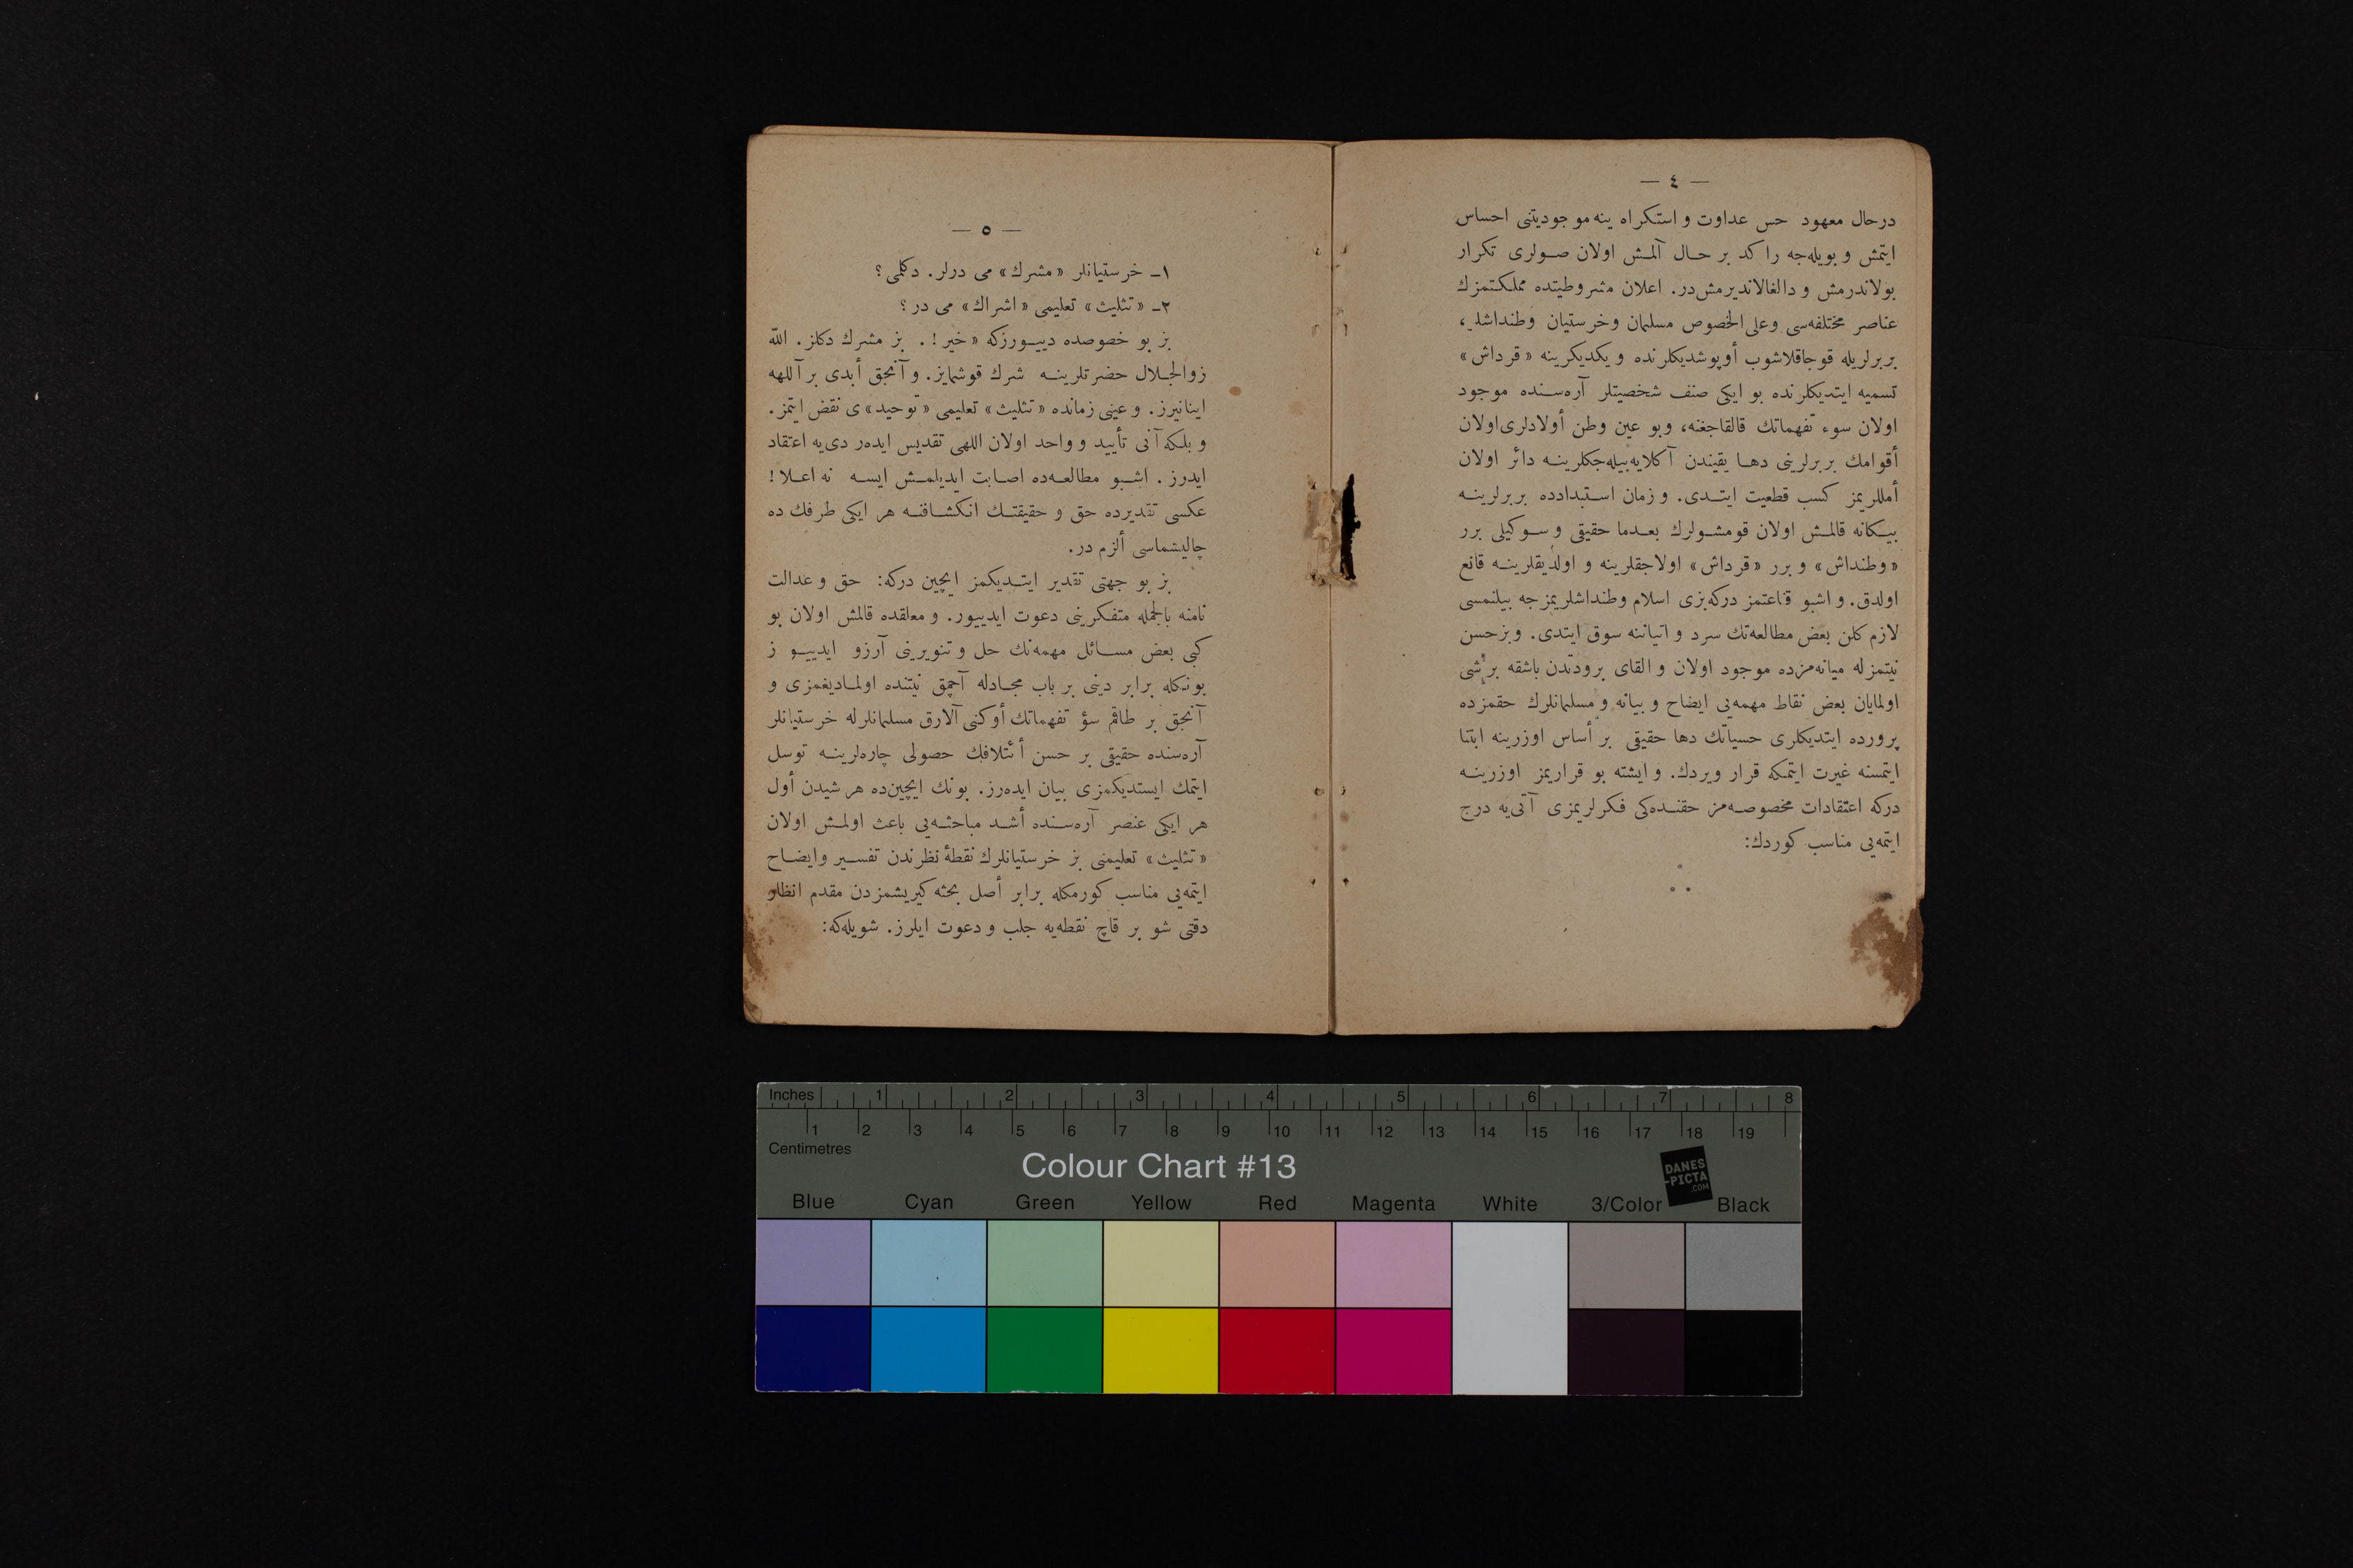 — ٤ —
درحال معهود حس عداوت و استكراه ينه موجوديتنى احساس
ايتمش و بويله‌جه راكد بر حال آلمش اولان صولرى تكرار
بولاندرمش و دالغالانديرمش‌در. اعلان مشروطيتده مملكتمزك
عناصر مختلفه‌سى وعلى الخصوص مسلمان وخرستيان وطنداشلر،
بربرلريله قوجاقلاشوب أوپوشديكلرنده و يكديكرينه «قرداش»
تسميه ايتديكلرنده بو ايكى صنف شخصيتلر آره‌سنده موجود
اولان سوء تفهماتك قالقاجغنه، وبو عين وطن أولادلرى اولان
أقوامك بربرلرينى دها يقيندن آكلايه‌بيله‌جكلرينه دائر اولان
أمللريمز كسب قطعيت ايتدى. و زمان استبدادده بربرلرينه
بيكانه قالمش اولان قومشولرك بعدما حقيقى و سوكيلى برر
«وطنداش» و برر «قرداش» اولاجقلرينه و اولديقلرينه قانع
اولدق. و اشبو قناعتمز دركه‌بزى اسلام وطنداشلريمزجه بيلنمسى
لازم كلن بعض مطالعه‌تك سرد و اتياننه سوق ايتدى. وبزحسن
نيتمزله ميانه‌مزده موجود اولان و القاى برودتدن باشقه برشى
اولمايان بعض نقاط مهمه‌يى ايضاح و بيانه و مسلمانلرك حقمزده
پرورده ايتديكلرى حسياتك دها حقيقى بر أساس اوزرينه ابتنا
ايتمسنه غيرت ايتمكه قرار ويردك. و ايشته بو قراريمز اوزرينه
دركه اعتقادات مخصوصه‌مز حقنده‌كى فكرلريمزى آتى‌يه درج
ايتمه‌يى مناسب كوردك:
— ٥ —
١ـ خرستيانلر «مشرك» مى درلر. دكلمى؟
٢ـ «تثليث» تعليمى «اشراك» مى در؟
بز بو خصوصده دييورزكه «خير!. بز مشرك دكلز. الله
زوالجلال حضرتلرينه شرك قوشمايز. و آنجق أبدى بر آللهه
اينانيرز. و عينى زمانده «تثليث» تعليمى «توحيد» ى نقض ايتمز.
و بلكه آنى تأييد و واحد اولان اللهى تقديس ايده‌ر دى‌يه اعتقاد
ايدرز. اشبو مطالعه‌ده اصابت ايديلمش ايسه نه اعلا!
عكسى تقديرده حق و حقيقتك انكشافنه هر ايكى طرفك ده
چاليشماسى ألزم در.
بز بو جهتى تقدير ايتديكمز ايچين دركه: حق و عدالت
نامنه بالجمله متفكرينى دعوت ايدييور. و معلقده قالمش اولان بو
كبى بعض مسائل مهمه‌نك حل و تنويرينى آرزو ايدييو ز
بونكله برابر دينى بر باب مجادله آچمق نيتنده اولماديغمزى و
آنجق بر طاقم سؤ تفهماتك أوكنى آلارق مسلمانلرله خرستيانلر
آره‌سنده حقيقى بر حسن أئتلافك حصولى چاره‌لرينه توسل
ايتمك ايستديكمزى بيان ايده‌رز. بونك ايچين‌ده هر شيدن أول
هر ايكى عنصر آره‌سنده أشد مباحثه‌يى باعث اولمش اولان
«تثليث» تعليمنى بز خرستيانلرك نقطۀ نظرندن تفسير وايضاح
ايتمه‌يى مناسب كورمكله برابر أصل بحثه كيريشمزدن مقدم انظار
دقتى شو بر قاچ نقطه‌يه جلب و دعوت ايلرز. شويله‌كه:
Inches 1 2 3 4 5 6 7 8
1 2 3 4 5 6 7 8 9 10 11 12 13 14 15 16 17 18 19
Centimetres
Colour Chart #13
DANES
-PICTA
.COM
Blue Cyan Green Yellow Red Magenta White 3/Color Black